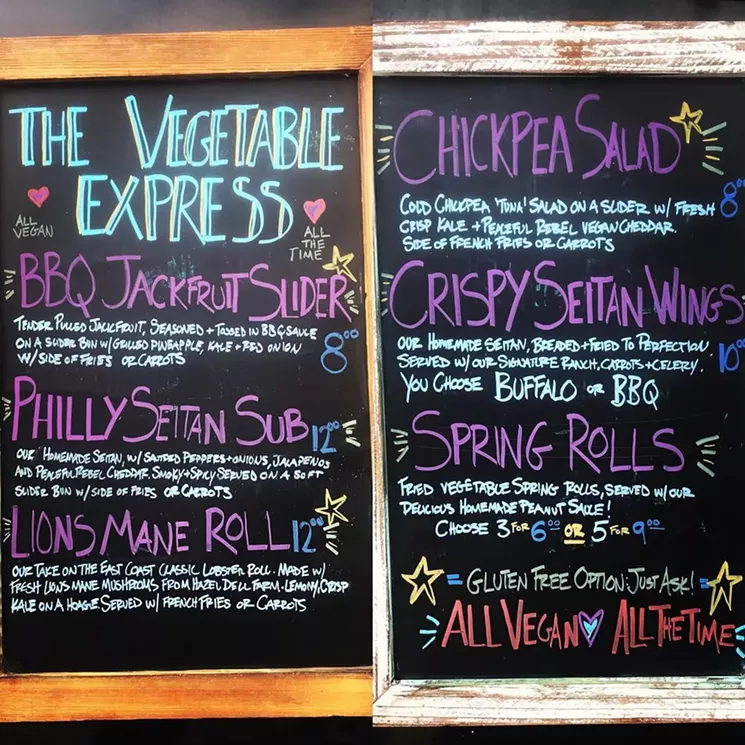 THE VEGETABLE
EXPRESS
ALL
VEGAN
ALL
THE
TIME
BBQ JACKFRUIT SLIDER
TENDER PULLED JACKFRUIT, SEASONED + TOSSED IN BBQ SAUCE
ON A SLIDER BUN W/ GRILLED PINEAPPLE, KALE + RED ONION
W/ SIDE OF FRIES OR CARROTS
8⁰⁰
PHILLY SEITAN SUB 12⁰⁰
OUR HOMEMADE SEITAN, W/ SAUTEED PEPPERS + ONIONS, JALAPENOS
AND PEACEFUL REBEL CHEDDAR. SMOKY + SPICY SERVED ON A SOFT
SLIDER BUN W/ SIDE OF FRIES OR CARROTS
LIONS MANE ROLL 12⁰⁰
OUR TAKE ON THE EAST COAST CLASSIC LOBSTER ROLL. MADE W/
FRESH LIONS MANE MUSHROOMS FROM HAZEL DELL FARM. LEMONY, CRISP
KALE ON A HOAGIE SERVED W/ FRENCH FRIES OR CARROTS
CHICKPEA SALAD
8⁰⁰
COLD CHICKPEA 'TUNA' SALAD ON A SLIDER W/ FRESH
CRISP KALE + PEACEFUL REBEL VEGAN CHEDDAR.
SIDE OF FRENCH FRIES OR CARROTS
CRISPY SEITAN WINGS
OUR HOMEMADE SEITAN, BREADED + FRIED TO PERFECTION
SERVED W/ OUR SIGNATURE RANCH, CARROTS + CELERY. 10⁰⁰
YOU CHOOSE BUFFALO OR BBQ
SPRING ROLLS
FRIED VEGETABLE SPRING ROLLS, SERVED W/ OUR
DELICIOUS HOMEMADE PEANUT SAUCE!
CHOOSE 3 FOR 6⁰⁰ OR 5 FOR 9⁰⁰
= GLUTEN FREE OPTION: JUST ASK! =
ALL VEGAN ALL THE TIME